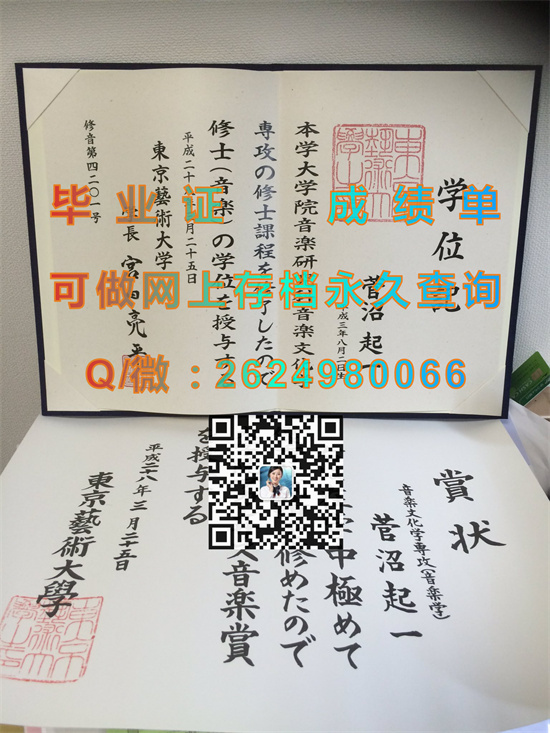 毕业证 成绩单
可做网上存档永久查询
Q/微：2624980066
学位記
菅沼起一
成三年八月二日生
本学大学院音楽研 音楽文化学
専攻の修士課程を 了したので
修士(音楽)の学位を授与する
平成二十 月二十五日
東京藝術大学
学長 宮田亮平
修音第四二〇一号
賞状
音楽文化学専攻(音楽学)
菅沼起一
中極めて
修めたので
音楽賞
を授与する
平成二八年三月二五日
東京藝術大學